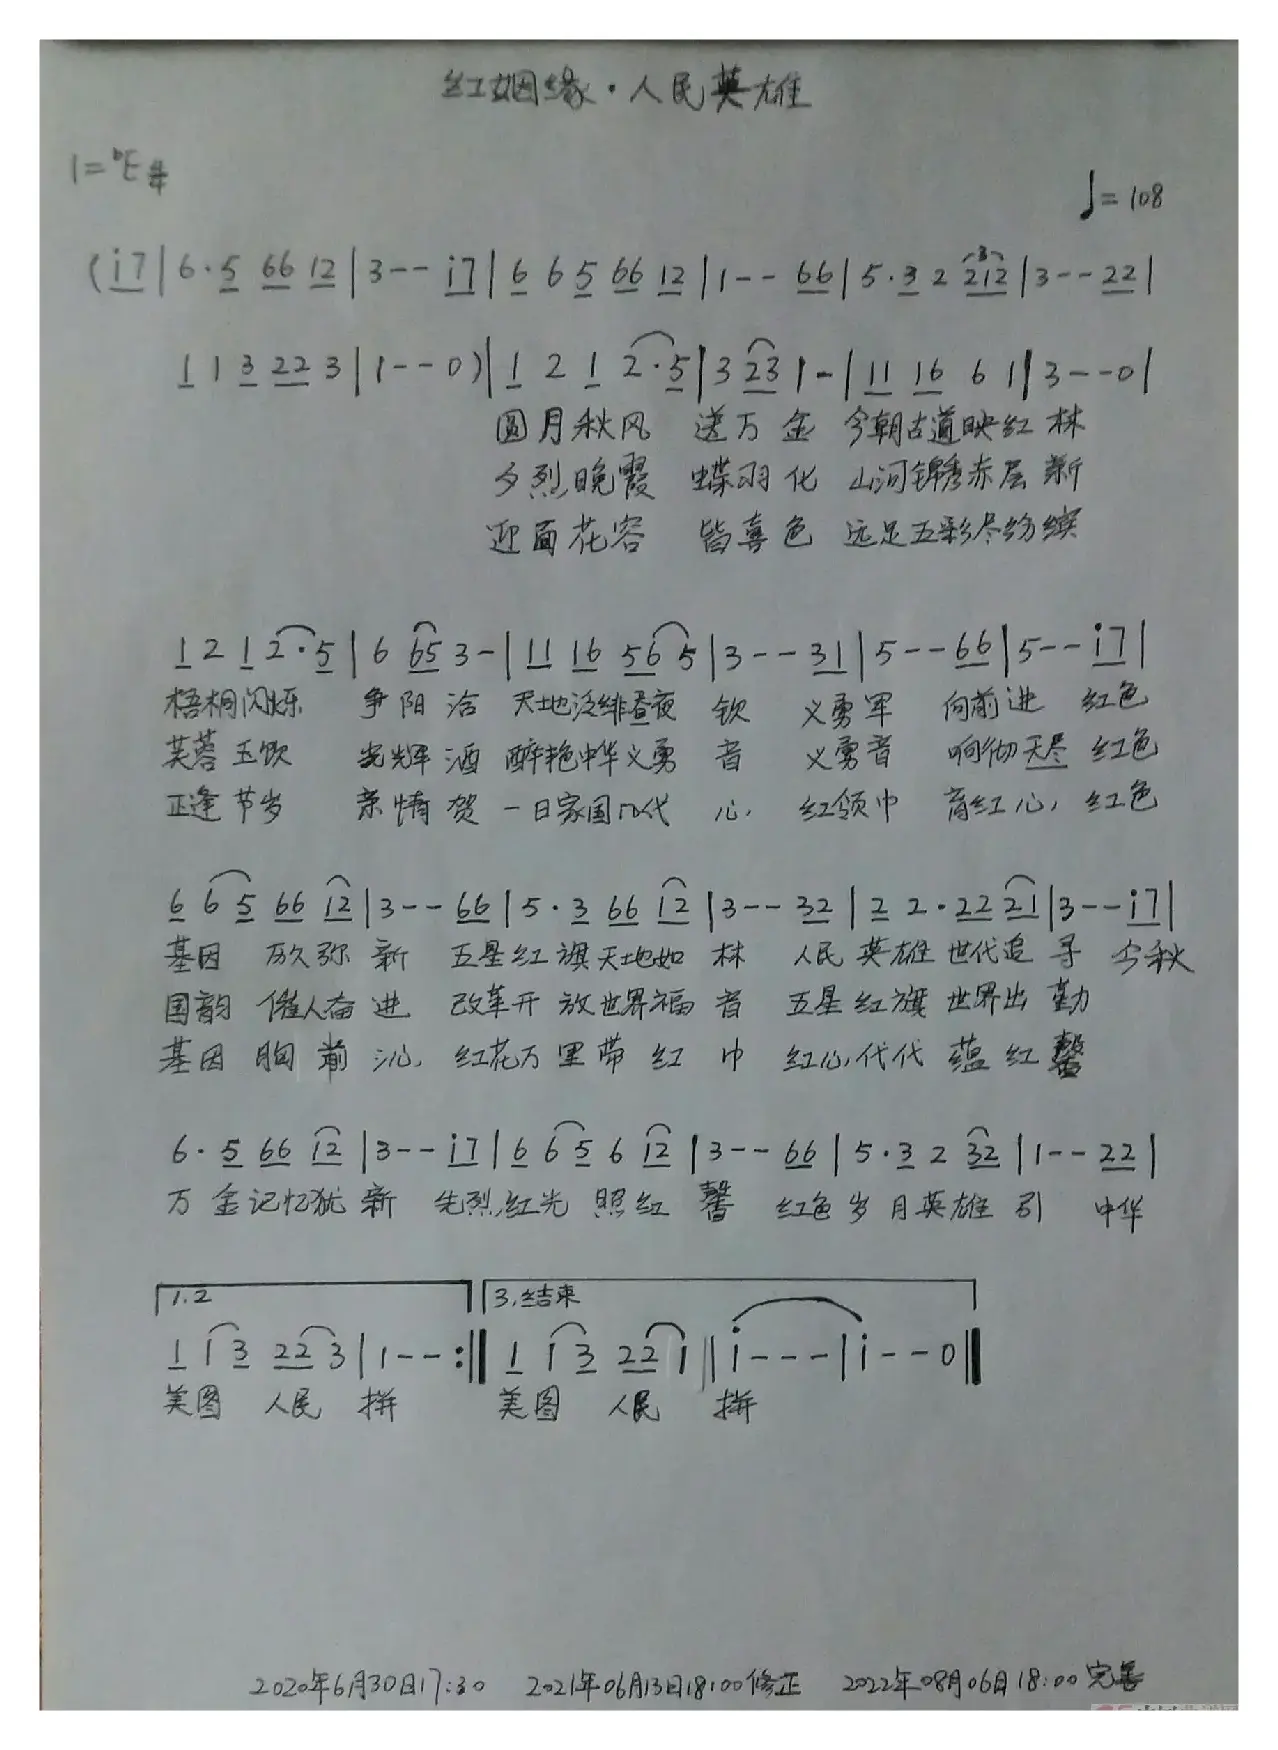 红姻缘·人民英雄
1=♭E 4/4
♩=108
(i7|6·5 66 12|3-- i7|6 6 5 66 12|1-- 66|5·3 2 212|3-- 22|
1 1 3 22 3|1--0)|1 2 1 2·5|3 23 1-|11 16 6 1|3--0|
圆月秋风 送万金 今朝古道映红林
夕烈晚霞 蝶羽化 山河锦秀赤层新
迎面花容 皆喜色 远足五彩尽纷缤
1 2 1 2·5|6 65 3-|11 16 56 5|3-- 31|5-- 66|5-- i7|
梧桐闪烁 争阳洽 天地泛绯昼夜 钦 义勇军 向前进 红色
芙蓉玉饮 光辉酒 醉艳中华义勇 音 义勇音 响彻天尽 红色
正逢节岁 亲情贺 一日家国几代 心, 红领巾 育红心, 红色
6 6 5 66 12|3-- 66|5·3 66 12|3-- 32|2 2·22 21|3-- i7|
基因 历久弥 新 五星红旗天地如 林 人民英雄世代追寻 今秋
国韵 催人奋 进 改革开放世界福 音 五星红旗世界出勤
基因 胸前 沁, 红花万里带红 巾 红心,代代蕴红馨
6·5 66 12|3-- i7|6 6 5 6 12|3-- 66|5·3 2 32|1-- 22|
万金记忆犹 新 先烈,红光照红 馨 红色岁月英雄 引 中华
1.2 3.结束
1 1 3 22 3|1--:‖ 1 1 3 22 1‖i---|i--0‖
美图 人民 拼 美图 人民 拼
2020年6月30日17:30 2021年06月13日18:00修正 2022年08月06日18:00完善